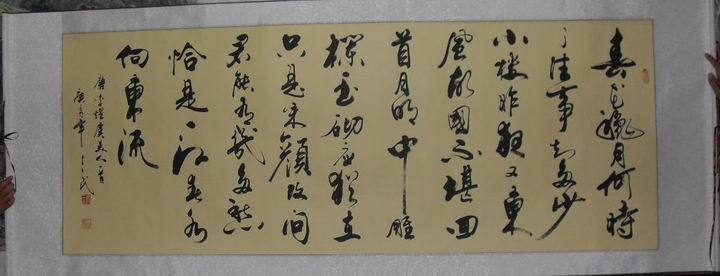 春花秋月何時
了往事知多少
小樓昨夜又東
風故國不堪回
首月明中雕
欄玉砌應猶在
只是朱顏改問
君能有幾多愁
恰是一江春水
向東流
唐李煜虞美人一首
庚寅年